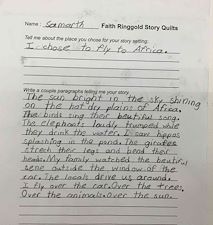 Name: Samarth Faith Ringgold Story Quilts
Tell me about the place you chose for your story setting.
I chose to fly to Africa.
Write a couple paragraphs telling me your story.
The sun bright in the sky shining
on the hot dry plains of Africa.
The birds sing their beautiful song.
The elephants loudly trumped while
they drink the water. I saw hippos
splashing in the pond. The giraffes
strech their legs and bend their
heads. My family watched the beautiful
sene outside the window of the
car. The locals drive us around.
I fly over the car. Over the trees.
Over the animals. Over the sun.